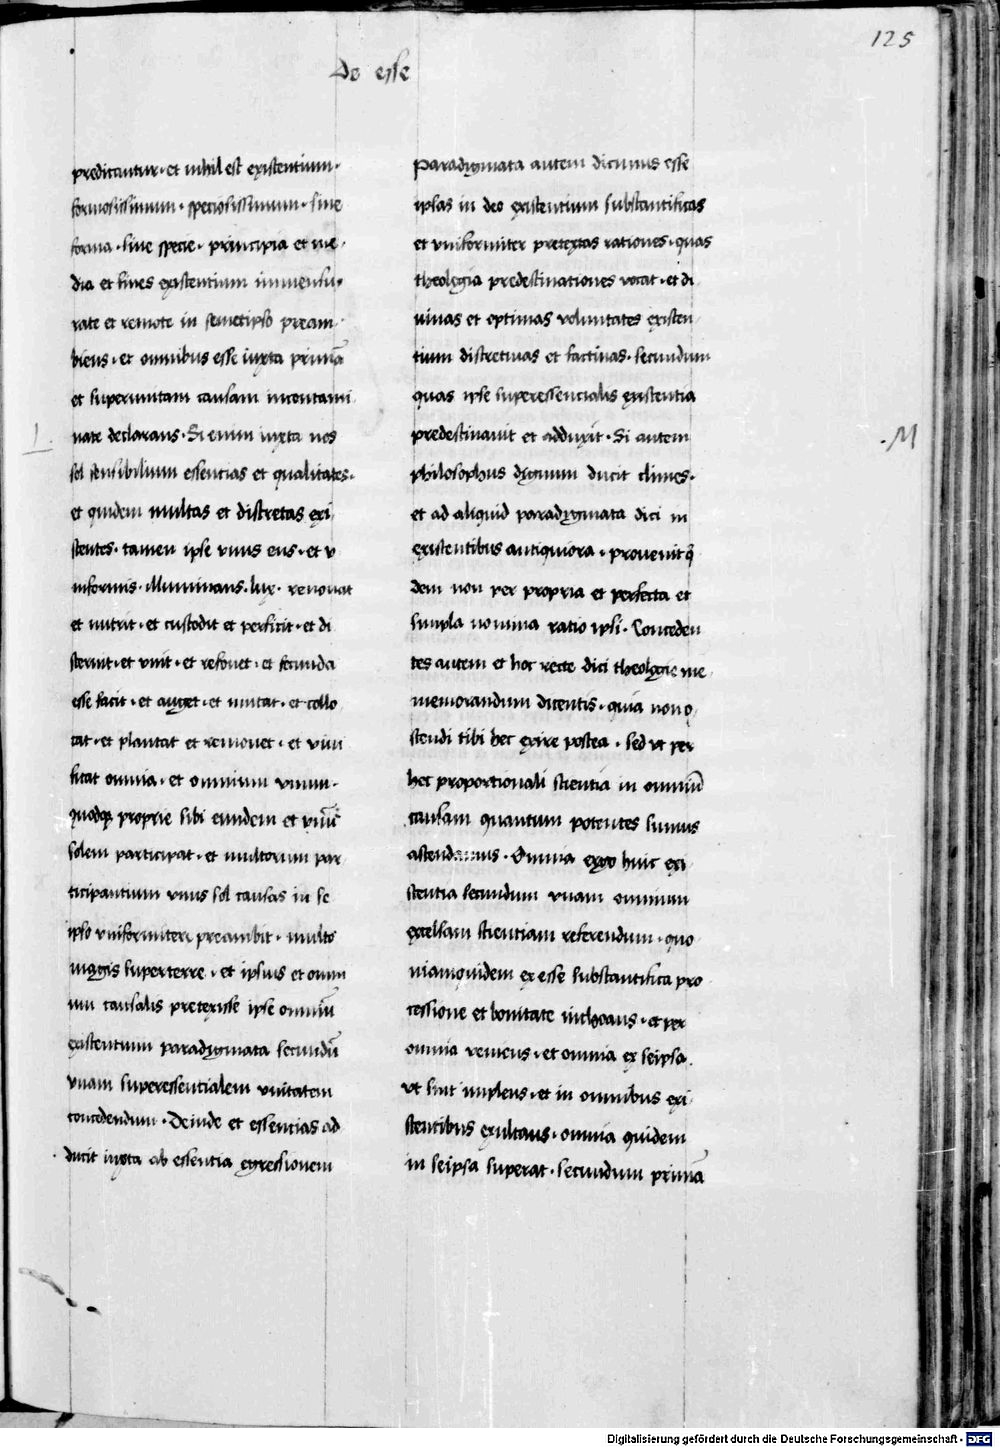 125
De esse
predicantur · et nihil est existentium ·
formosissimum · speciosissimum · sine
forma · sine specie · principia et me
dia et fines existentium immensu
rate et remote in semetipso pream
biens · et omnibus esse iuxta primā
et superunitam causam incontami
nate declarans · Si enim iuxta nos
sol sensibilium essentias et qualitates ·
et quidem multas et discretas exi
stentes · tamen ipse unus ens · et v
niformis · illuminans · lux · renouat
et nutrit · et custodit et perficit · et di
scernit · et vnit · et refouet · et fecunda
esse facit · et auget · et mutat · et collo
cat · et plantat et remouet · et viui
ficat omnia · et omnium vnum ·
quodque proprie sibi eundem et vnū
solem participat · et multorum par
ticipantium vnus sol causas in se
ipso vniformiter preambit · multo
magis super terre · et ipsius et omni
um causalis preterisse ipse omniū
existentium paradigmata secundū
vnam superessentialem vnitatem
concedendum · Deinde et essentias ad
ducit iuxta ab essentia egressionem
L
Paradigmata autem dicimus esse
ipsas in deo existentium substantificas
et vniformiter pretextas rationes · quas
theologia predestinationes vocat · et di
uinas et optimas voluntates existen
tium discretiuas et factiuas · secundum
quas ipse superessencialis existentia
predestinauit et adduxit · Si autem
philosophus dignum ducit climes ·
et ad aliquid paradigmata dici in
existentibus antiquiora · prouenit
dem non per propria et perfecta et
simpla nomina ratio ipsi · Conceden
tes autem et hoc recte dici theologie me
memorandum dicentis · quia non o
stendi tibi hec exire postea · sed vt per
hec proportionali scientia in omniū
causam quantum potentes sumus
ascendamus · Omnia ergo huic exi
stentia secundum vnam omnium
excelsam scientiam referendum · quo
niamquidem ex esse substantifica pro
cessione et bonitate inchoans · et per
omnia veniens · et omnia ex seipsa
vt sint implens · et in omnibus exi
stentibus exultans · omnia quidem
in seipsa superat · secundum primā
· M
Digitalisierung gefördert durch die Deutsche Forschungsgemeinschaft · DFG